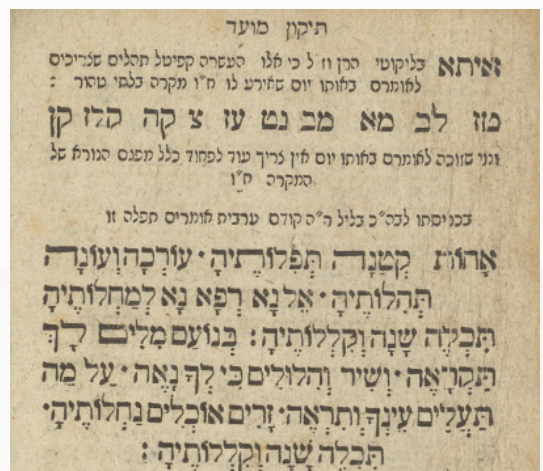 תיקון מועד
איתא בליקוטי הרן וז ל כי אלו העשרה קפיטל תהלים שצריכים
לאומרם באותו יום שאירע לו ח"ו מקרה בלתי טהור :
טז לב מא מב נט עז צ קה קלז קן
ומי שזוכה לאומרם באותו יום אין צריך עוד לפחוד כלל מפגם הנורא של
המקרה ח"ו
בכניסתו לבה"כ בליל ר"ה קודם ערבית אומרים תפלה זו
אָחוֹת קְטַנָּה תְּפִלּוֹתֶיהָ · עוֹרְכָה וְעוֹנָה
תְּהִלּוֹתֶיהָ · אֵל נָא רְפָא נָא לְמַחֲלוֹתֶיהָ
תִּכְלֶה שָׁנָה וְקִלְלוֹתֶיהָ : בְּנוֹעַם מִלִּים לָךְ
תִּקְרָאֶה · וְשִׁיר וְהִלּוּלִים כִּי לְךָ נָאֶה · עַל מַה
תַּעֲלִים עֵינְךָ וְתִרְאֶה · זָרִים אוֹכְלִים נַחֲלוֹתֶיהָ ·
תִּכְלֶה שָׁנָה וְקִלְלוֹתֶיהָ :